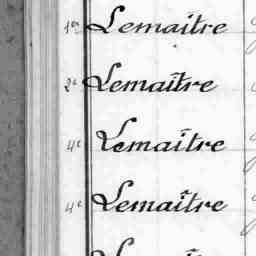 1er Lemaître
2e Lemaître
4e Lemaître
4e Lemaître